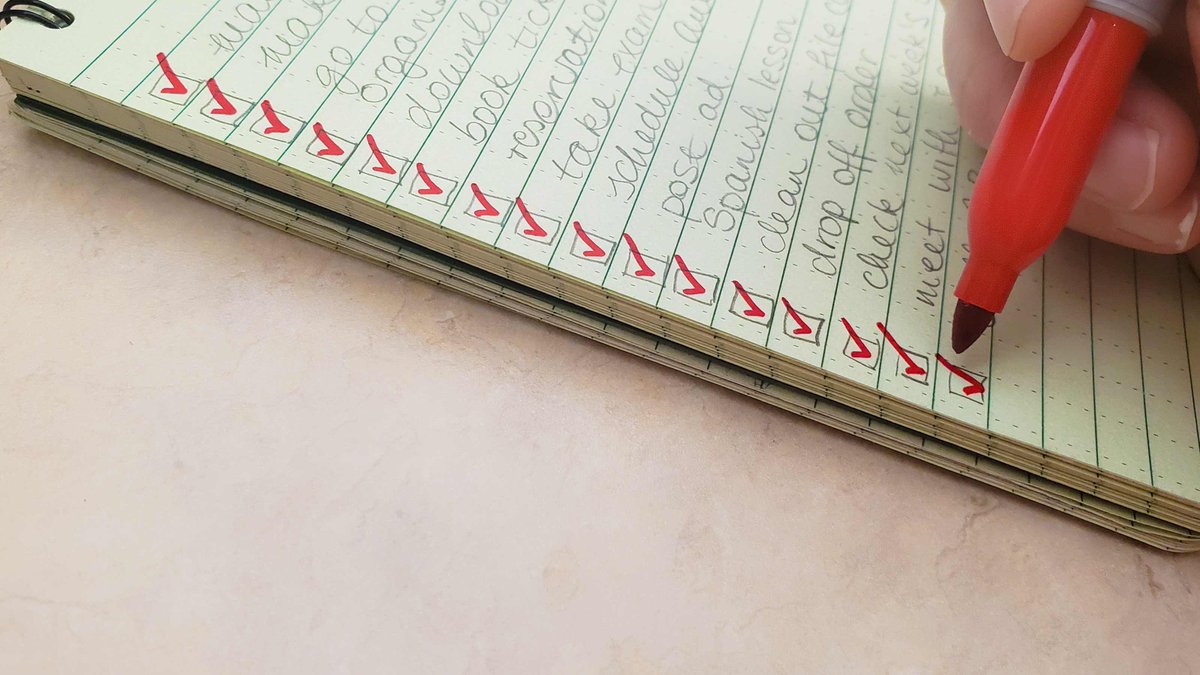 mak
go to
organi
downloa
book tick
reservation
take exam
schedule au
post ad
Spanish lesson
clean out file c
drop off order
check next week's
meet with